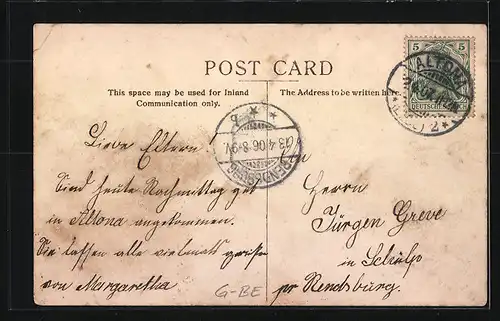 POST CARD
This space may be used for Inland
Communication only.
The Address to be written here.
5 5
DEUTSCHES
ALTONA
2
RENDSBURG
13.4.06.8-9V.
Liebe Eltern!
Sind heute Nachmittag gut
in Altona angekommen.
Sie lassen alle vielmals grüßen
von Margaretha
Herrn
Jürgen Greve
in Schülp
pr Rendsburg.
G-BE